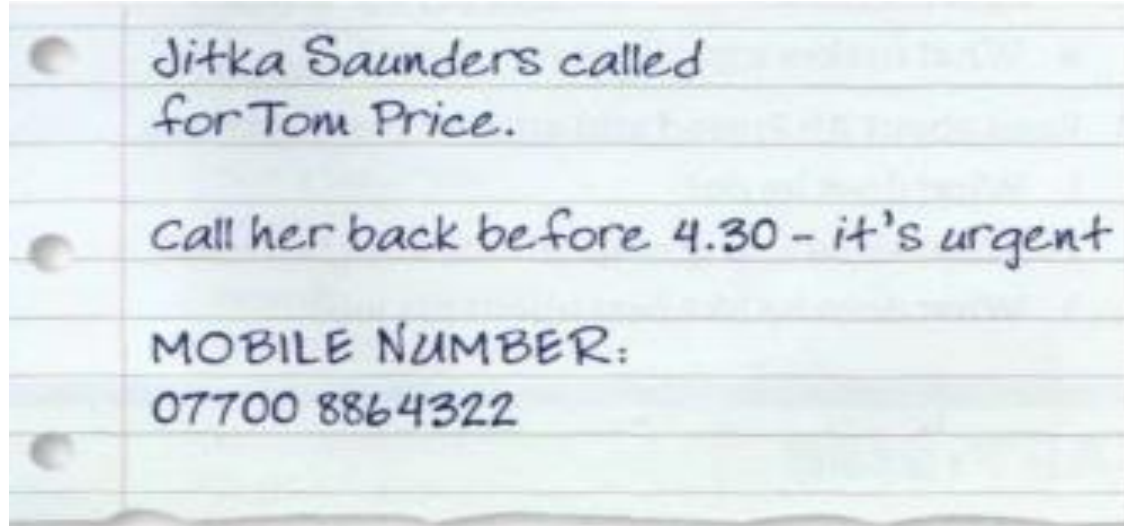 Jitka Saunders called
for Tom Price.
Call her back before 4.30 - it's urgent
MOBILE NUMBER:
07700 8864322